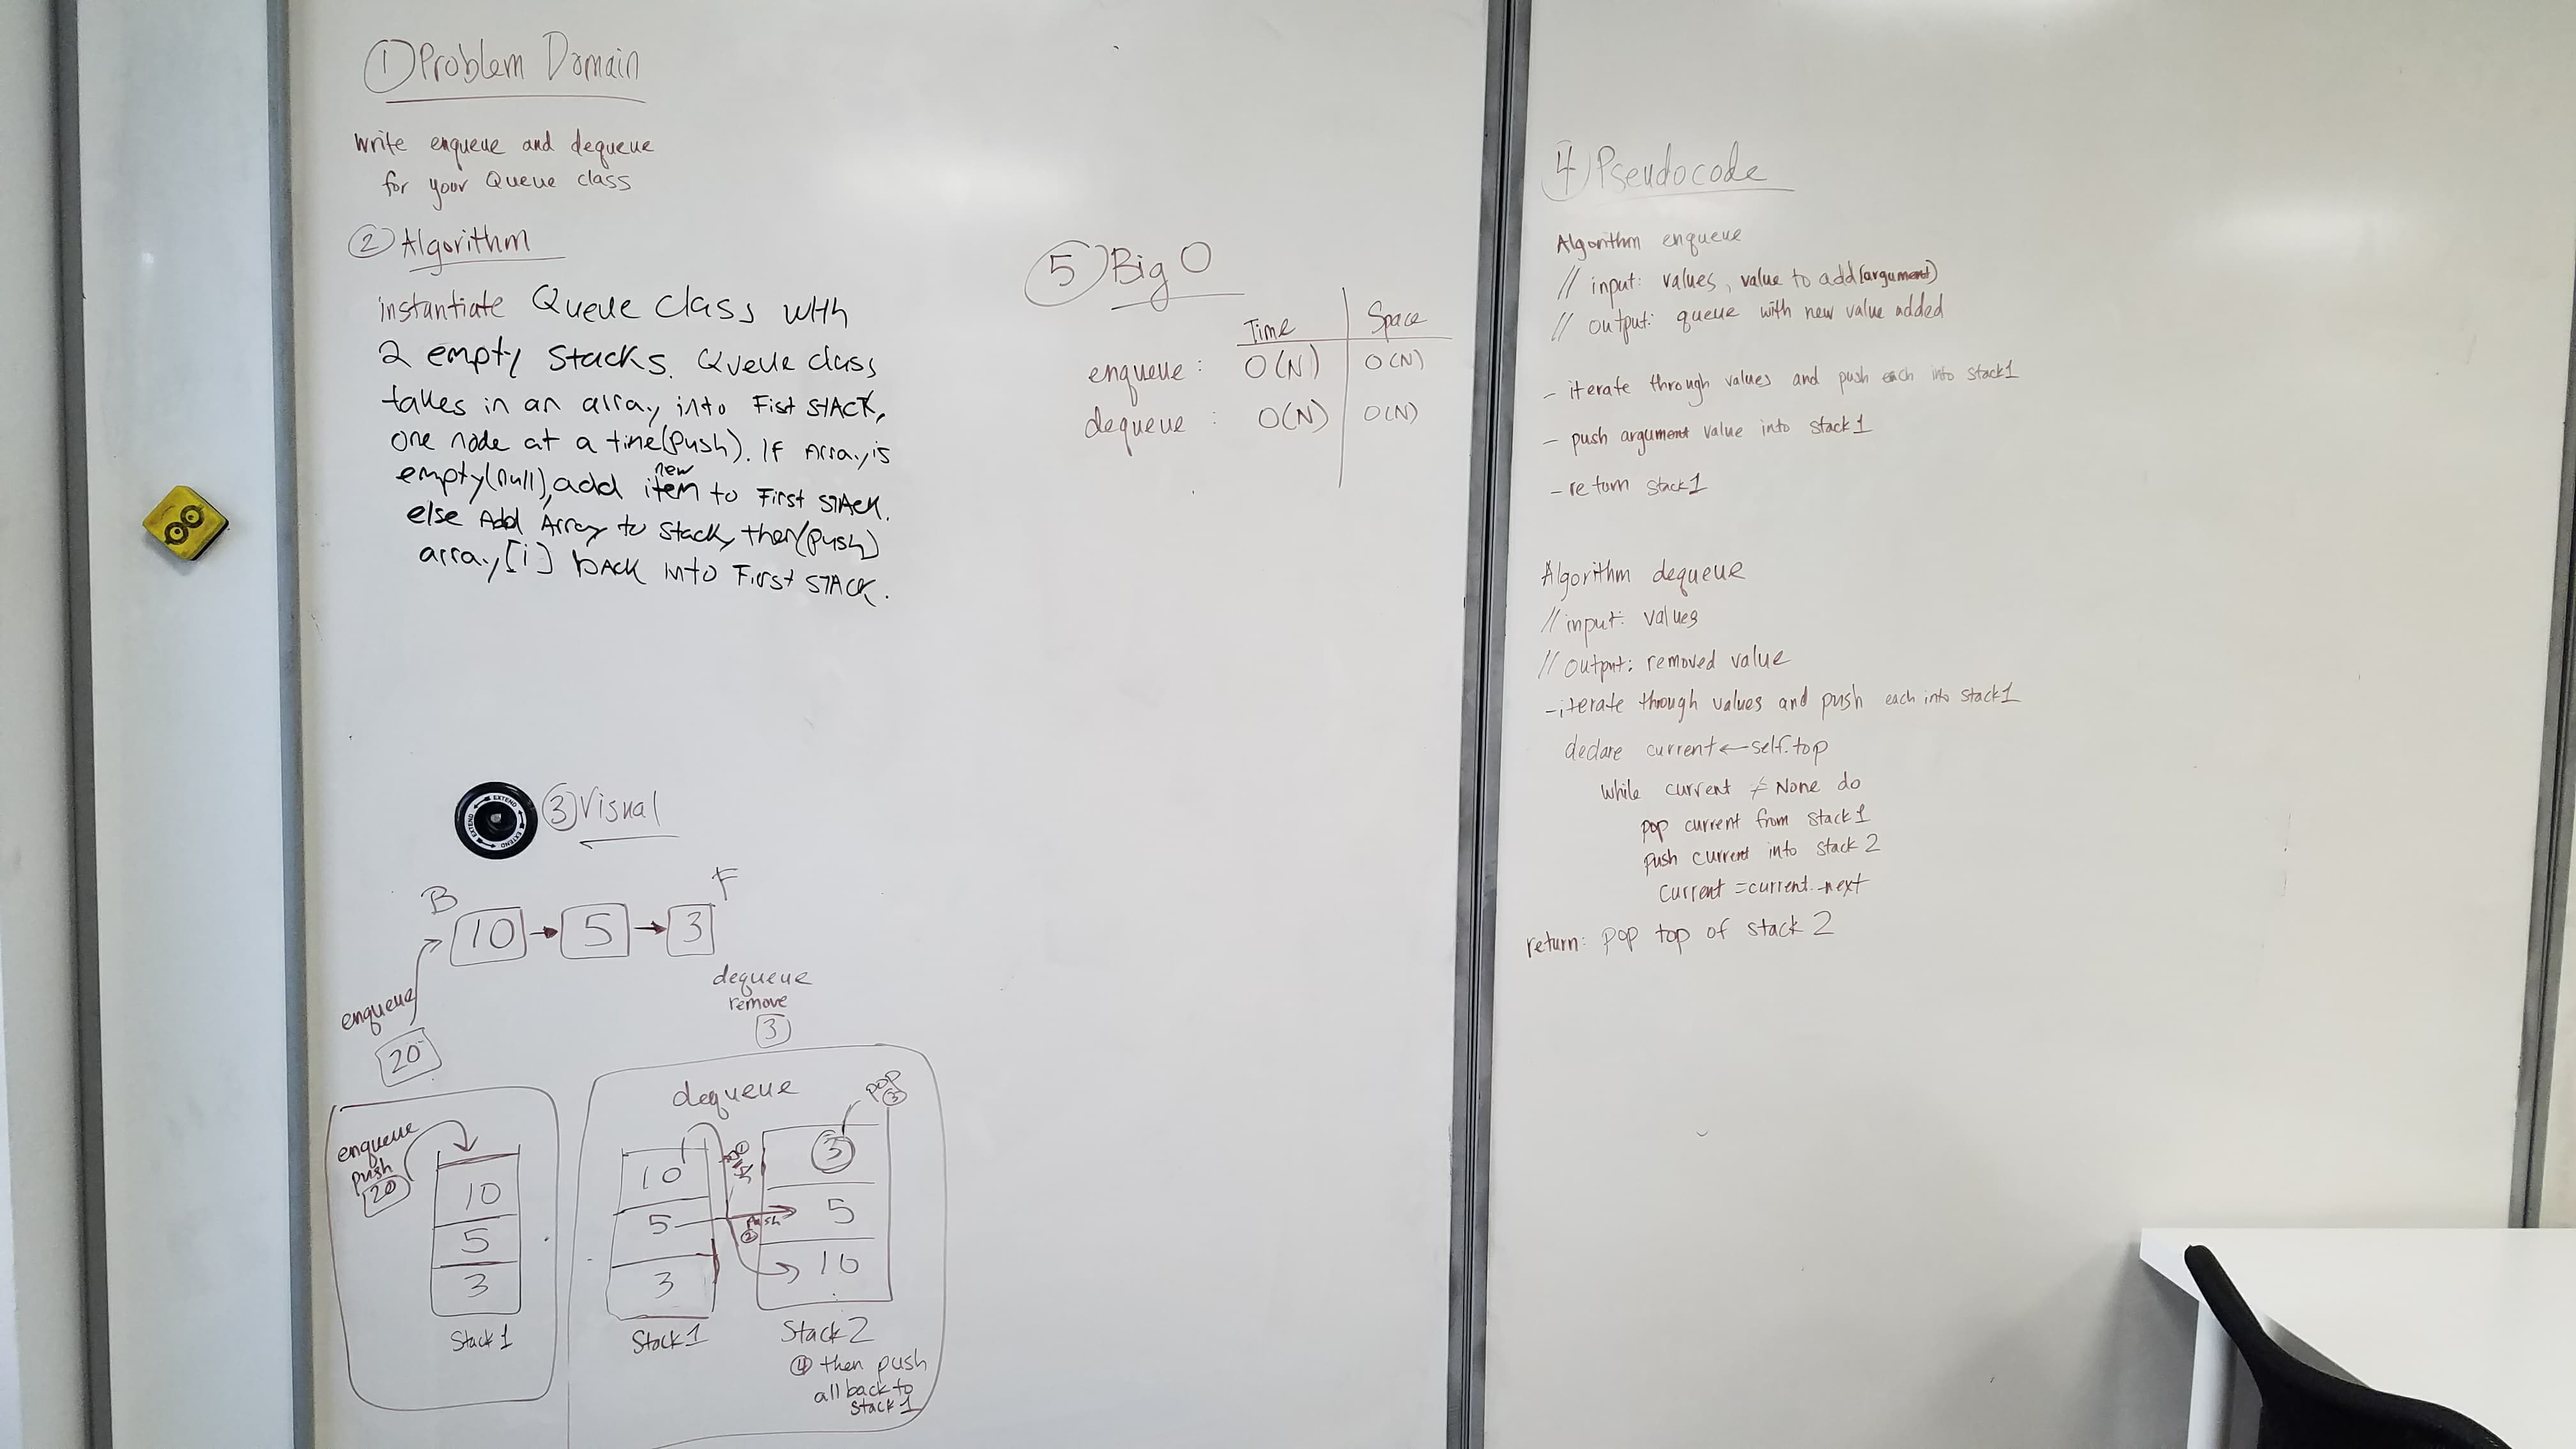 ① Problem Domain
Write enqueue and dequeue
for your Queue class
② Algorithm
instantiate Queue class with
2 empty Stacks. Queue class
takes in an array into Fist STACK,
one node at a time(push). If Array is
empty(null), add new item to First STACK.
else Add Array to stack, then(push)
array[i] back into First STACK.
③ Visual
EXTEND EXTEND EXTEND
B F
10 → 5 → 3
enqueue
20
dequeue
remove
3
enqueue
push
20
10
5
3
Stack 1
dequeue
pop
③
10
5
3
Stack 1
push
②
3
5
10
Stack 2
④ then push
all back to
stack 1
⑤ Big O
Time Space
enqueue : O(N) O(N)
dequeue : O(N) O(N)
④ Pseudocode
Algorithm enqueue
// input: values, value to add(argument)
// output: queue with new value added
- iterate through values and push each into stack1
- push argument value into stack1
- return stack1
Algorithm dequeue
// input: values
// output: removed value
- iterate through values and push each into stack1
declare current ← self.top
while current ≠ None do
pop current from stack1
push current into stack 2
current = current.next
return: pop top of stack 2